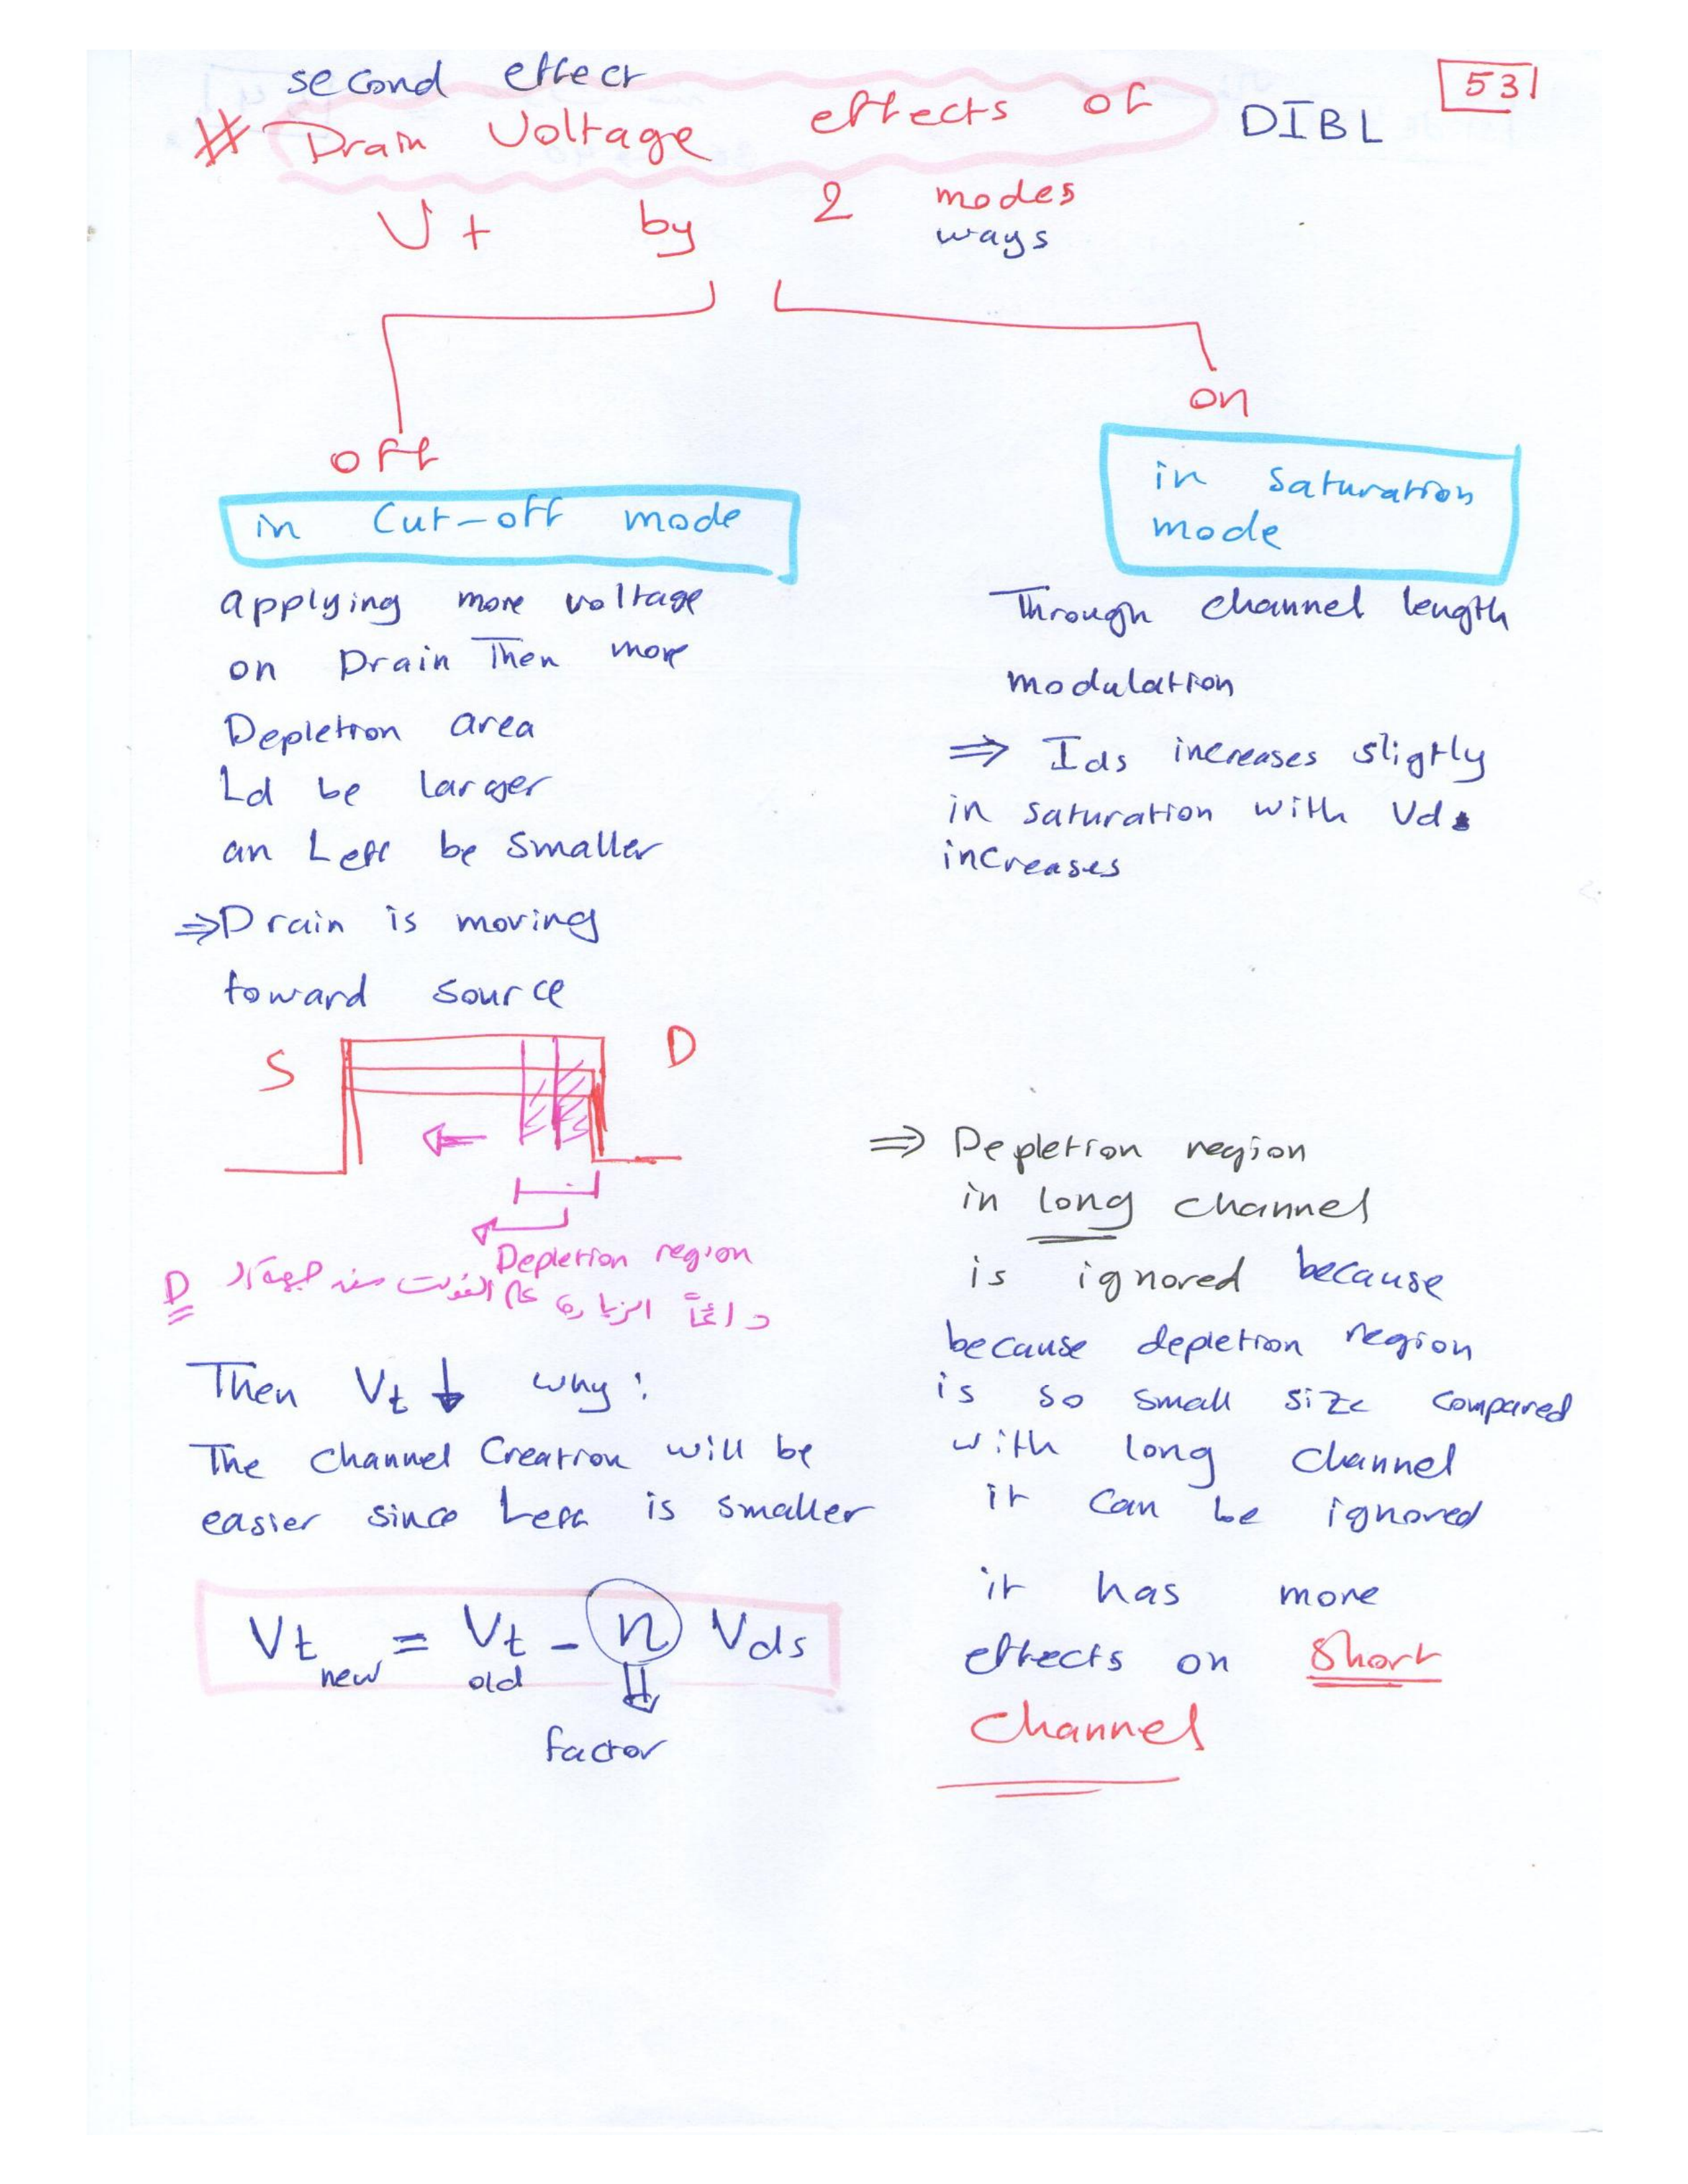 second effect
53
# Drain Voltage effects of DIBL
Vt by 2 modes
ways
off
on
in Cut-off mode
applying more voltage
on Drain Then more
Depletion area
Ld be larger
an Leff be smaller
⇒ Drain is moving
toward source
S D
Depletion region
دائماً الزيادة على الفولت من جهة ال D
Then Vt ↓ why:
The channel Creation will be
easier since Leff is smaller
Vt new = Vt old - n Vds
factor
in saturation
mode
Through channel length
modulation
⇒ Ids increases sligtly
in saturation with Vd
increases
⇒ Depletion region
in long channel
is ignored because
because depletion region
is so small size compared
with long channel
it can be ignored
it has more
effects on short
channel